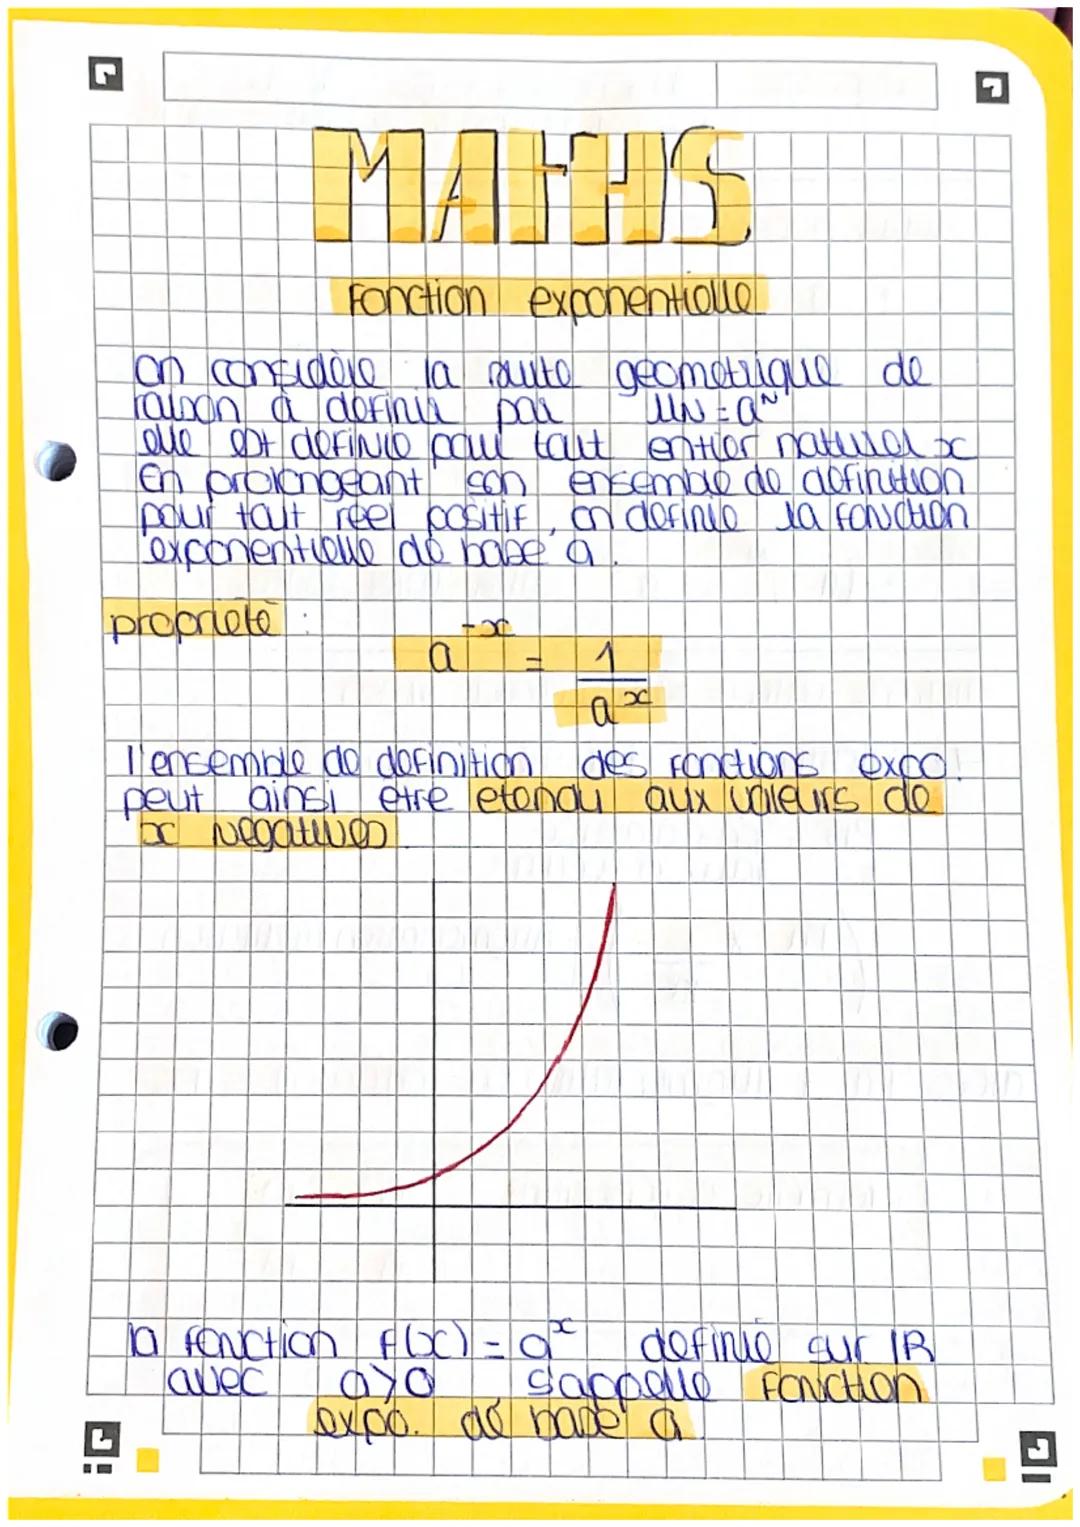 MATHS
Fonction exponentielle
on considère la suite geometrique de
raison a definir par UN = a^N
elle est definie pour tout entier naturel x
En prolongeant son ensemble de definition
pour tout réel positif, on definie la fonction
exponentielle de base a.
propriete :
a^-x = 1/a^x
l'ensemble de definition des fonctions expo.
peut ainsi etre etendu aux valeurs de
x negatives.
la fonction f(x) = a^x definie sur IR
avec a>0 s'appelle fonction
expo. de base a